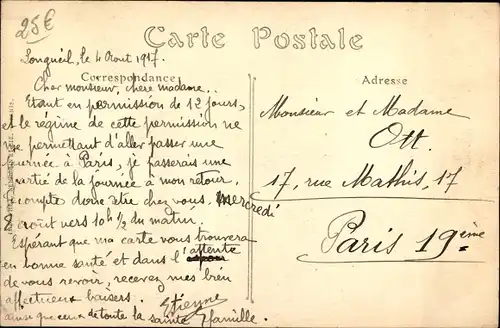 25€
Carte Postale
Longueil, le 4 Août 1917.
Correspondance
Adresse
Cher monsieur, chère madame..
Etant en permission de 12 jours,
et le régime de cette permission ne
me permettant d'aller passer une
journée à Paris, je passerais une
partie de la journée à mon retour,
compte donc être chez vous mercredi
8 août vers 10h 1/2 du matin.
Espérant que ma carte vous trouvera
en bonne santé et dans l'attente
de vous revoir, recevez mes bien
affectueux baisers. Etienne
ainsi que ceux de toute la famille.
Monsieur et Madame
Ott.
17, rue Mathis, 17
Paris 19ème